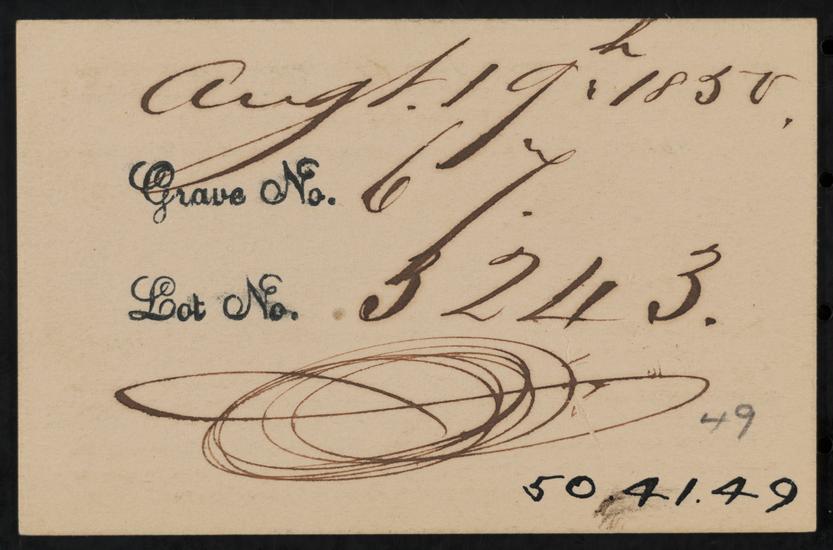 Augt. 19th 1850.
Grave No. 67.
Lot No. 3243.
49
50.41.49